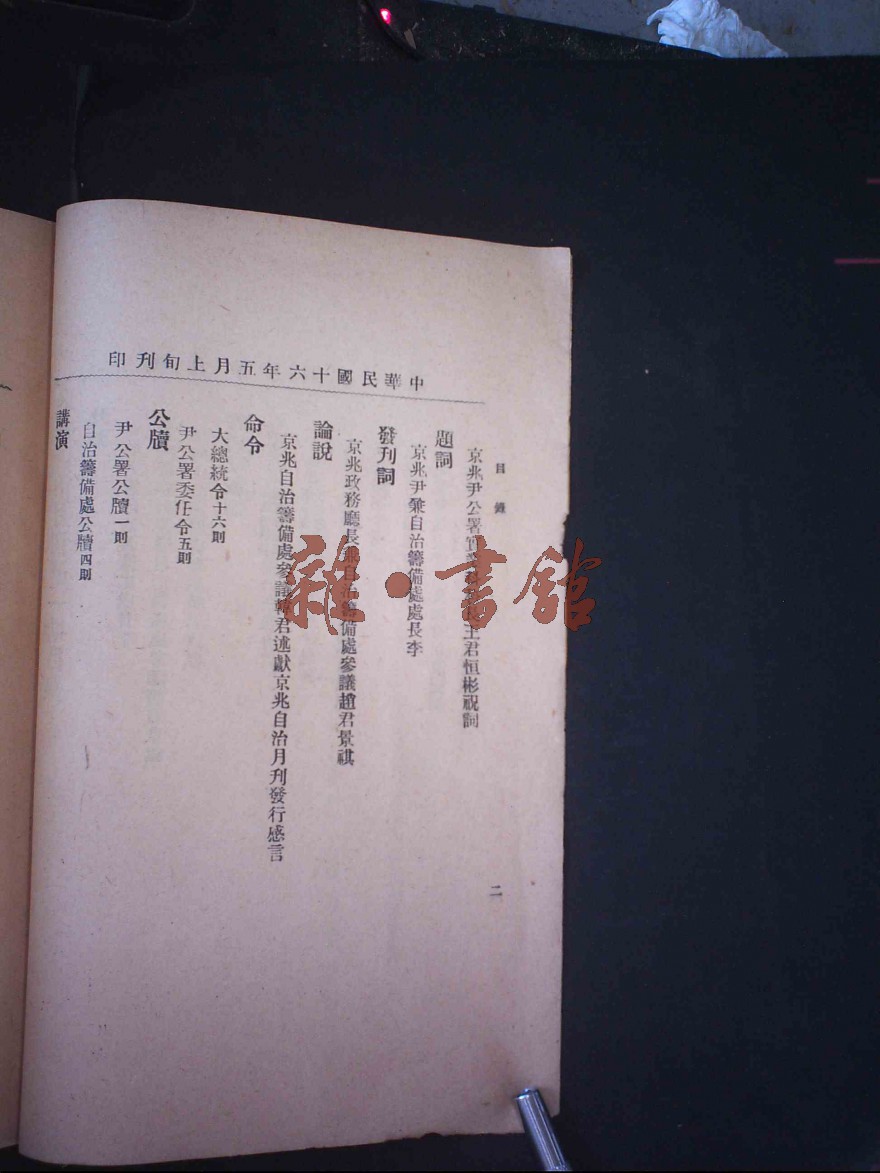 中華民國十六年五月上旬刊印
目錄
二
京兆尹公署實業王君恒彬祝詞
題詞
京兆尹兼自治籌備處處長李
發刊詞
京兆政務廳長兼自治籌備處參議趙君景祺
論說
京兆自治籌備處參議韓君述獻京兆自治月刊發行感言
命令
大總統令十六則
尹公署委任令五則
公牘
尹公署公牘一則
自治籌備處公牘四則
講演
雜·書館